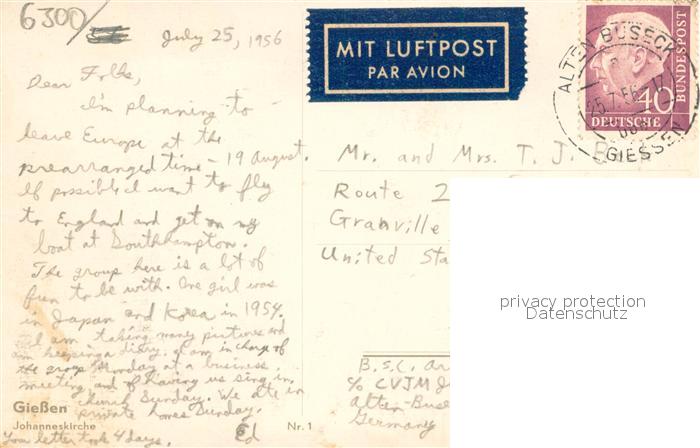 6300/
July 25, 1956
Dear Folks,
I'm planning to
leave Europe at the
prearranged time - 19 August.
If possible I want to fly
to England and get on my
boat at Southhampton.
The group here is a lot of
fun to be with. One girl was
in Japan and Korea in 1954.
I am taking many pictures and
am keeping a diary. I am in charge of
the group Monday at a business
meeting, and of having us sing in
church Sunday. We ate in
private homes Sunday.
Your letter took 4 days.
Ed
Gießen
Johanneskirche
Nr. 1
MIT LUFTPOST
PAR AVION
ALTEN BUSECK
25.7.56
GIESSEN
DEUTSCHE
BUNDESPOST
40
Mr. and Mrs. T. J.
Route 2
Granville
United Sta
privacy protection
Datenschutz
B.S.C.
c/o CVJM
Alten-Buse
Germany